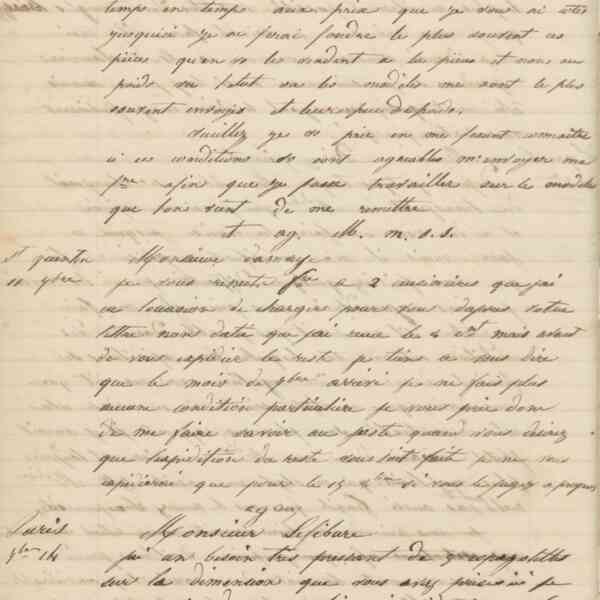 temps en temps aux prix que je vous ai cités
jusquici je ai ferai fondre le plus souvent ces
pièces quon vo les vendent a la pièce et nous au
poids les modèles me sont le plus
souvent envoyés et leur
veuillez je vs prie en me fesant connaitre
si ces conditions vs sont agréables m'envoyer ma
afin que je fasse travailler sur le modèle
que vous vient de me remettre
et ag. M. m. s. s.
St quentin Monsieur
11 9bre je vous remets fre a 2 que jai
eu loccasion de charger pour vous dapres votre
lettre sans date que jai recue le 4 ct mais avant
de vous expédier le reste je tiens a vous dire
que le mois de 9bre arrivé je ne fais plus
aucune condition particulière je vous prie donc
de me faire savoir au juste quand vous désirez
que lexpédition du reste vous soit faite je ne vous
expédierai que pour le 15 si vous le jugez a propos
agreez
Paris Monsieur Lefebure
9bre 14 jai un besoin très pressant de 3 espagolettes
sur la dimension que vous avez je